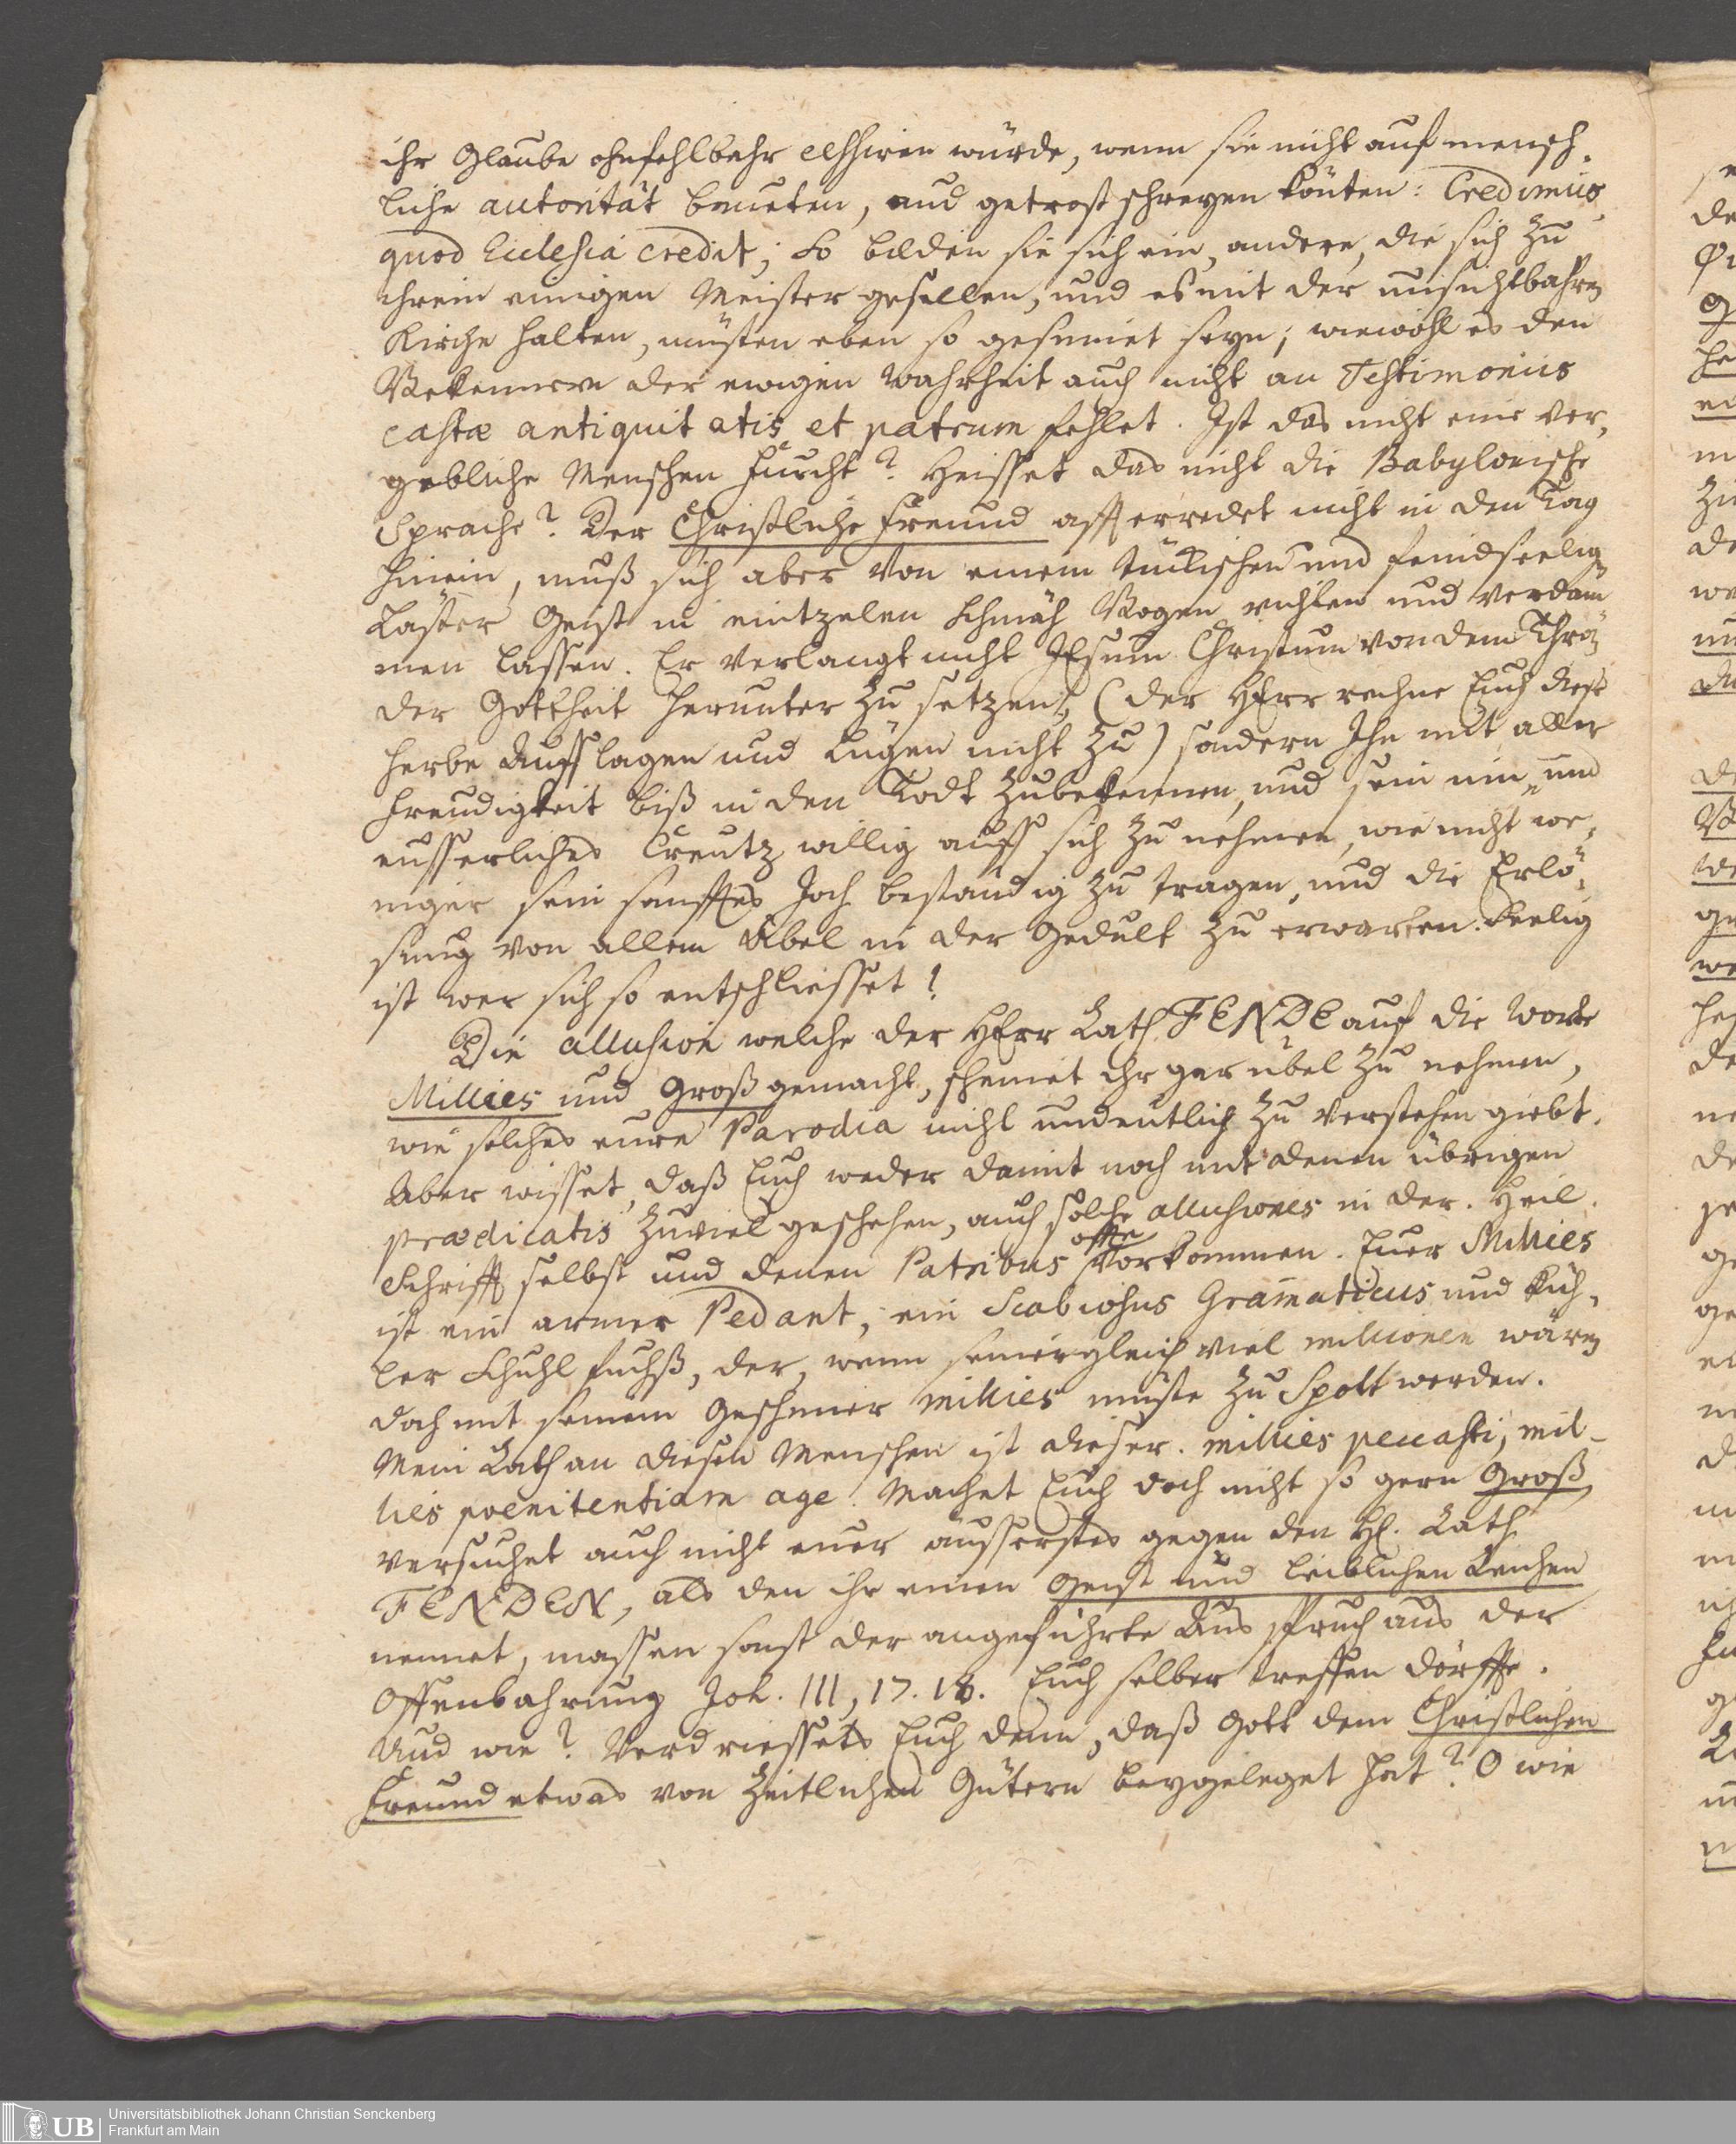 ihr Glaube ohnfehlbahr cessiren würde, wenn sie nicht auf mensch-
liche autorität baueten, und getrost schreyen könten: Credimus,
quod Ecclesia credit; So bilden sie sich ein, andere, die sich zu
ihrem einigen Meister gesellen, und es mit der unsichtbahren
Kirche halten, müsten eben so gesinnet seyn; wiewohl es den
Bekennern der ewigen Wahrheit auch nicht an Testimoniis
castæ antiquitatis et patrum fehlet. Ist das nicht eine ver-
gebliche Menschen Furcht? Heisset das nicht die Babylonische
Sprache? Der Christliche Freund afftterredet nicht in den Tag
hinein, muß sich aber von einem tückischen und feindseelig
Läster Geist in eintzelen Schmäh Bogen richten und verdam
men lassen. Er verlangt nicht JEsum Christum von dem Thron
der Gottheit herunter zu setzen, (der HErr rechne Euch diese
herbe Aufflagen und Lügen nicht zu) sondern Ihn mit aller
Freudigkeit biß in den Todt zubekennen, und sein in- und
eusserliches Creutz willig auff sich zu nehmen, wie nicht we-
niger sein sanfftes Joch beständig zu tragen, und die Erlö-
sung von allem Übel in der Gedult zu erwarten. Seelig
ist wer sich so entschliesset!
Die allusion welche der HErr Rath FENDE auf die Worte
Millies und Groß gemacht, scheinet ihr gar übel zu nehmen,
wie solches eure Parodia nicht undeutlich zu verstehen giebt.
Aber wisset, daß Euch weder damit noch mit denen übrigen
prædicatis zuviel geschehen, auch solche allusiones in der Heil.
Schrifft selbst und denen Patribus offte vorkommen. Euer Millies
ist ein armer Pedant, ein Scabiosus Gram̅aticus und küh-
ler Schuhl fuchß, der, wenn seiner gleich viel millionen wären
doch mit seinem Geschmier millies müste zu Spott werden.
Mein Rath an diesen Menschen ist dieser. millies peccasti, mil-
lies poenitentiam age. Machet Euch doch nicht so gern Groß,
versuchet auch nicht euer äusserstes gegen den H. Rath
FENDEN, als den ihr einen Geist und leiblichen Reichen
nennet, massen sonst der angeführte Ausspruch aus der
Offenbahrung Joh. III, 17. 18. Euch selber treffen dörffte.
Und wie? Verdriessets Euch denn, daß Gott dem Christlichen
Freund etwas von Zeitlichen Gütern beygeleget hat? O wie
Universitätsbibliothek Johann Christian Senckenberg
Frankfurt am Main
UB